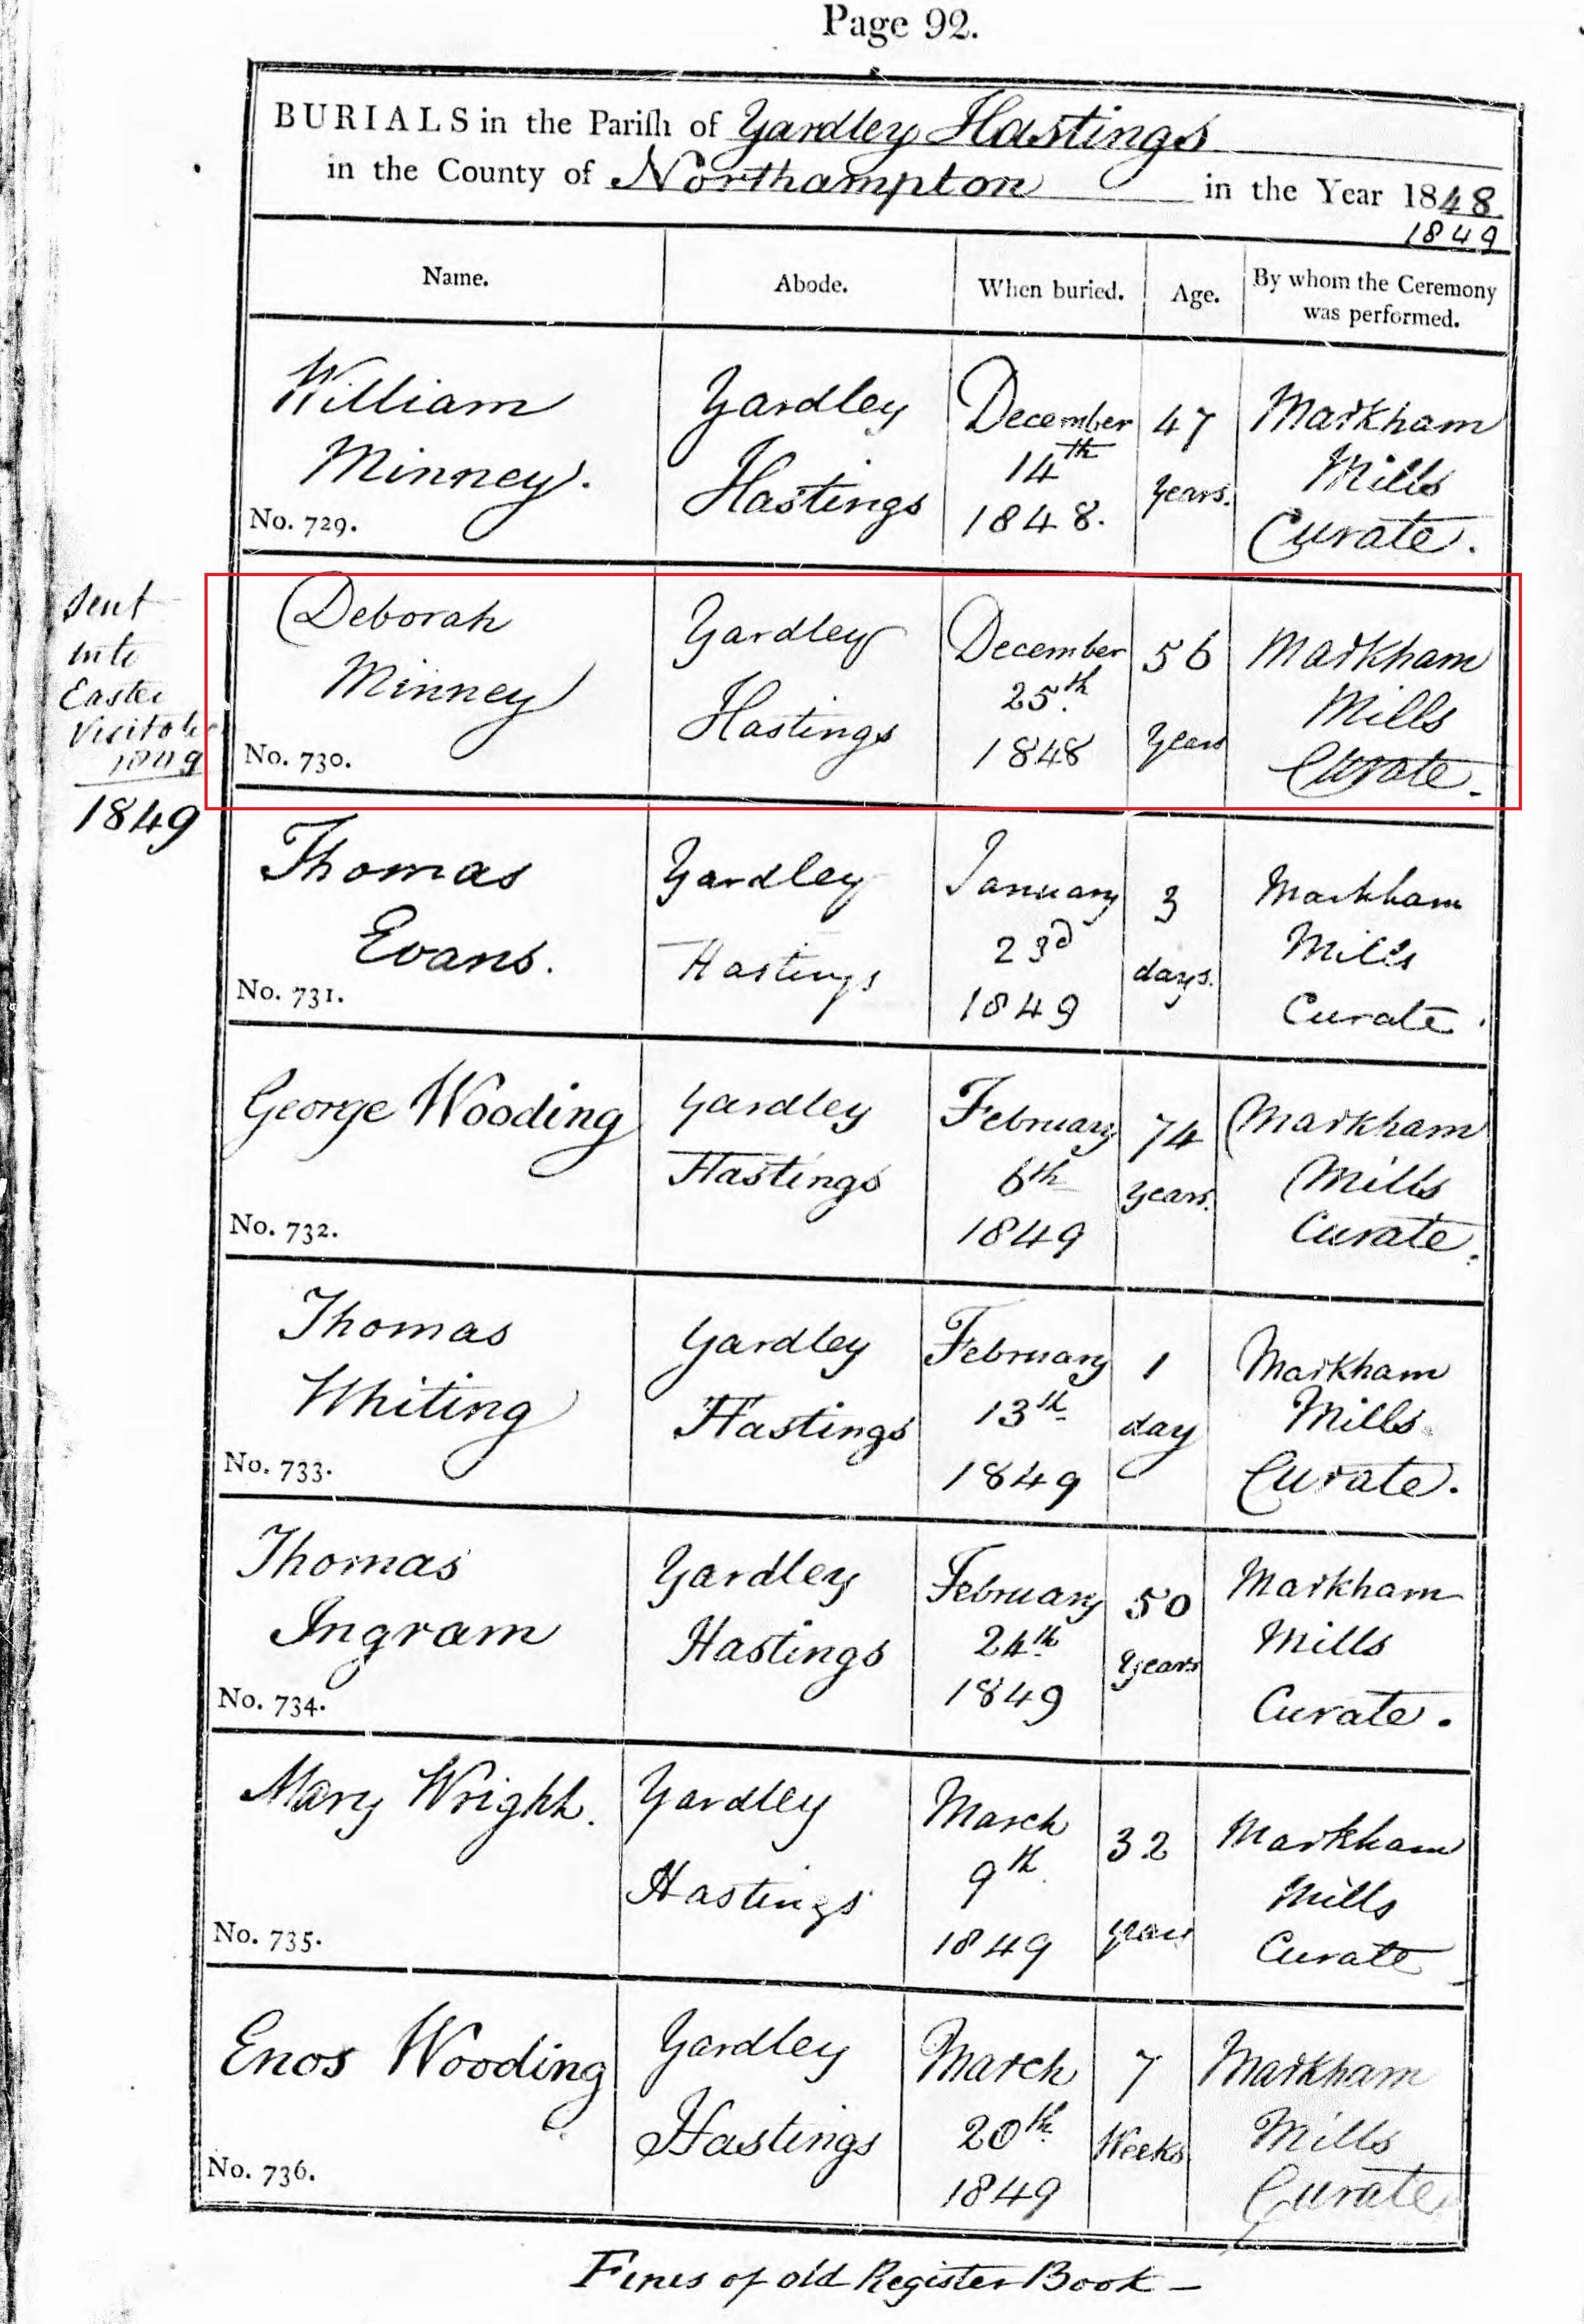 Page 92.
BURIALS in the Parish of Yardley Hastings
in the County of Northampton in the Year 1848
1849
Name. Abode. When buried. Age. By whom the Ceremony was performed.
William Minney. Yardley Hastings December 14th 1848. 47 years. Markham Mills Curate.
No. 729.
Deborah Minney Yardley Hastings December 25th 1848 56 years Markham Mills Curate.
No. 730.
Sent
into
Easter
1849
1849
Thomas Evans. Yardley Hastings January 23d 1849 3 days. Markham Mills Curate.
No. 731.
George Wooding Yardley Hastings February 6th 1849 74 years. Markham Mills Curate.
No. 732.
Thomas Whiting Yardley Hastings February 13th 1849 1 day Markham Mills Curate.
No. 733.
Thomas Ingram Yardley Hastings February 24th 1849 50 years Markham Mills Curate.
No. 734.
Mary Wright. Yardley Hastings March 9th 1849 32 years Markham Mills Curate
No. 735.
Enos Wooding Yardley Hastings March 20th 1849 7 Weeks Markham Mills Curate
No. 736.
Finis of old Register Book –